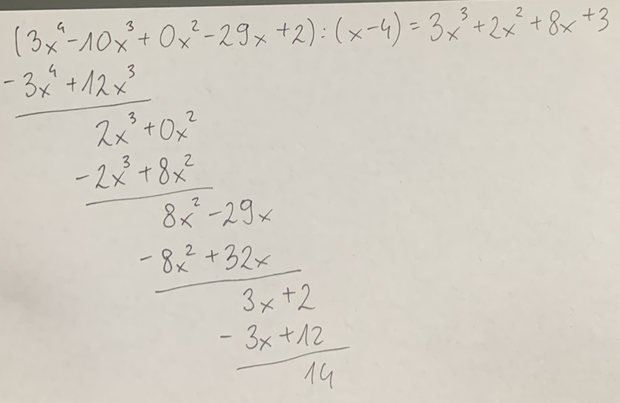 (3x⁴-10x³+0x²-29x+2):(x-4)=3x³+2x²+8x+3
-3x⁴+12x³
2x³+0x²
-2x³+8x²
8x²-29x
-8x²+32x
3x+2
-3x+12
14